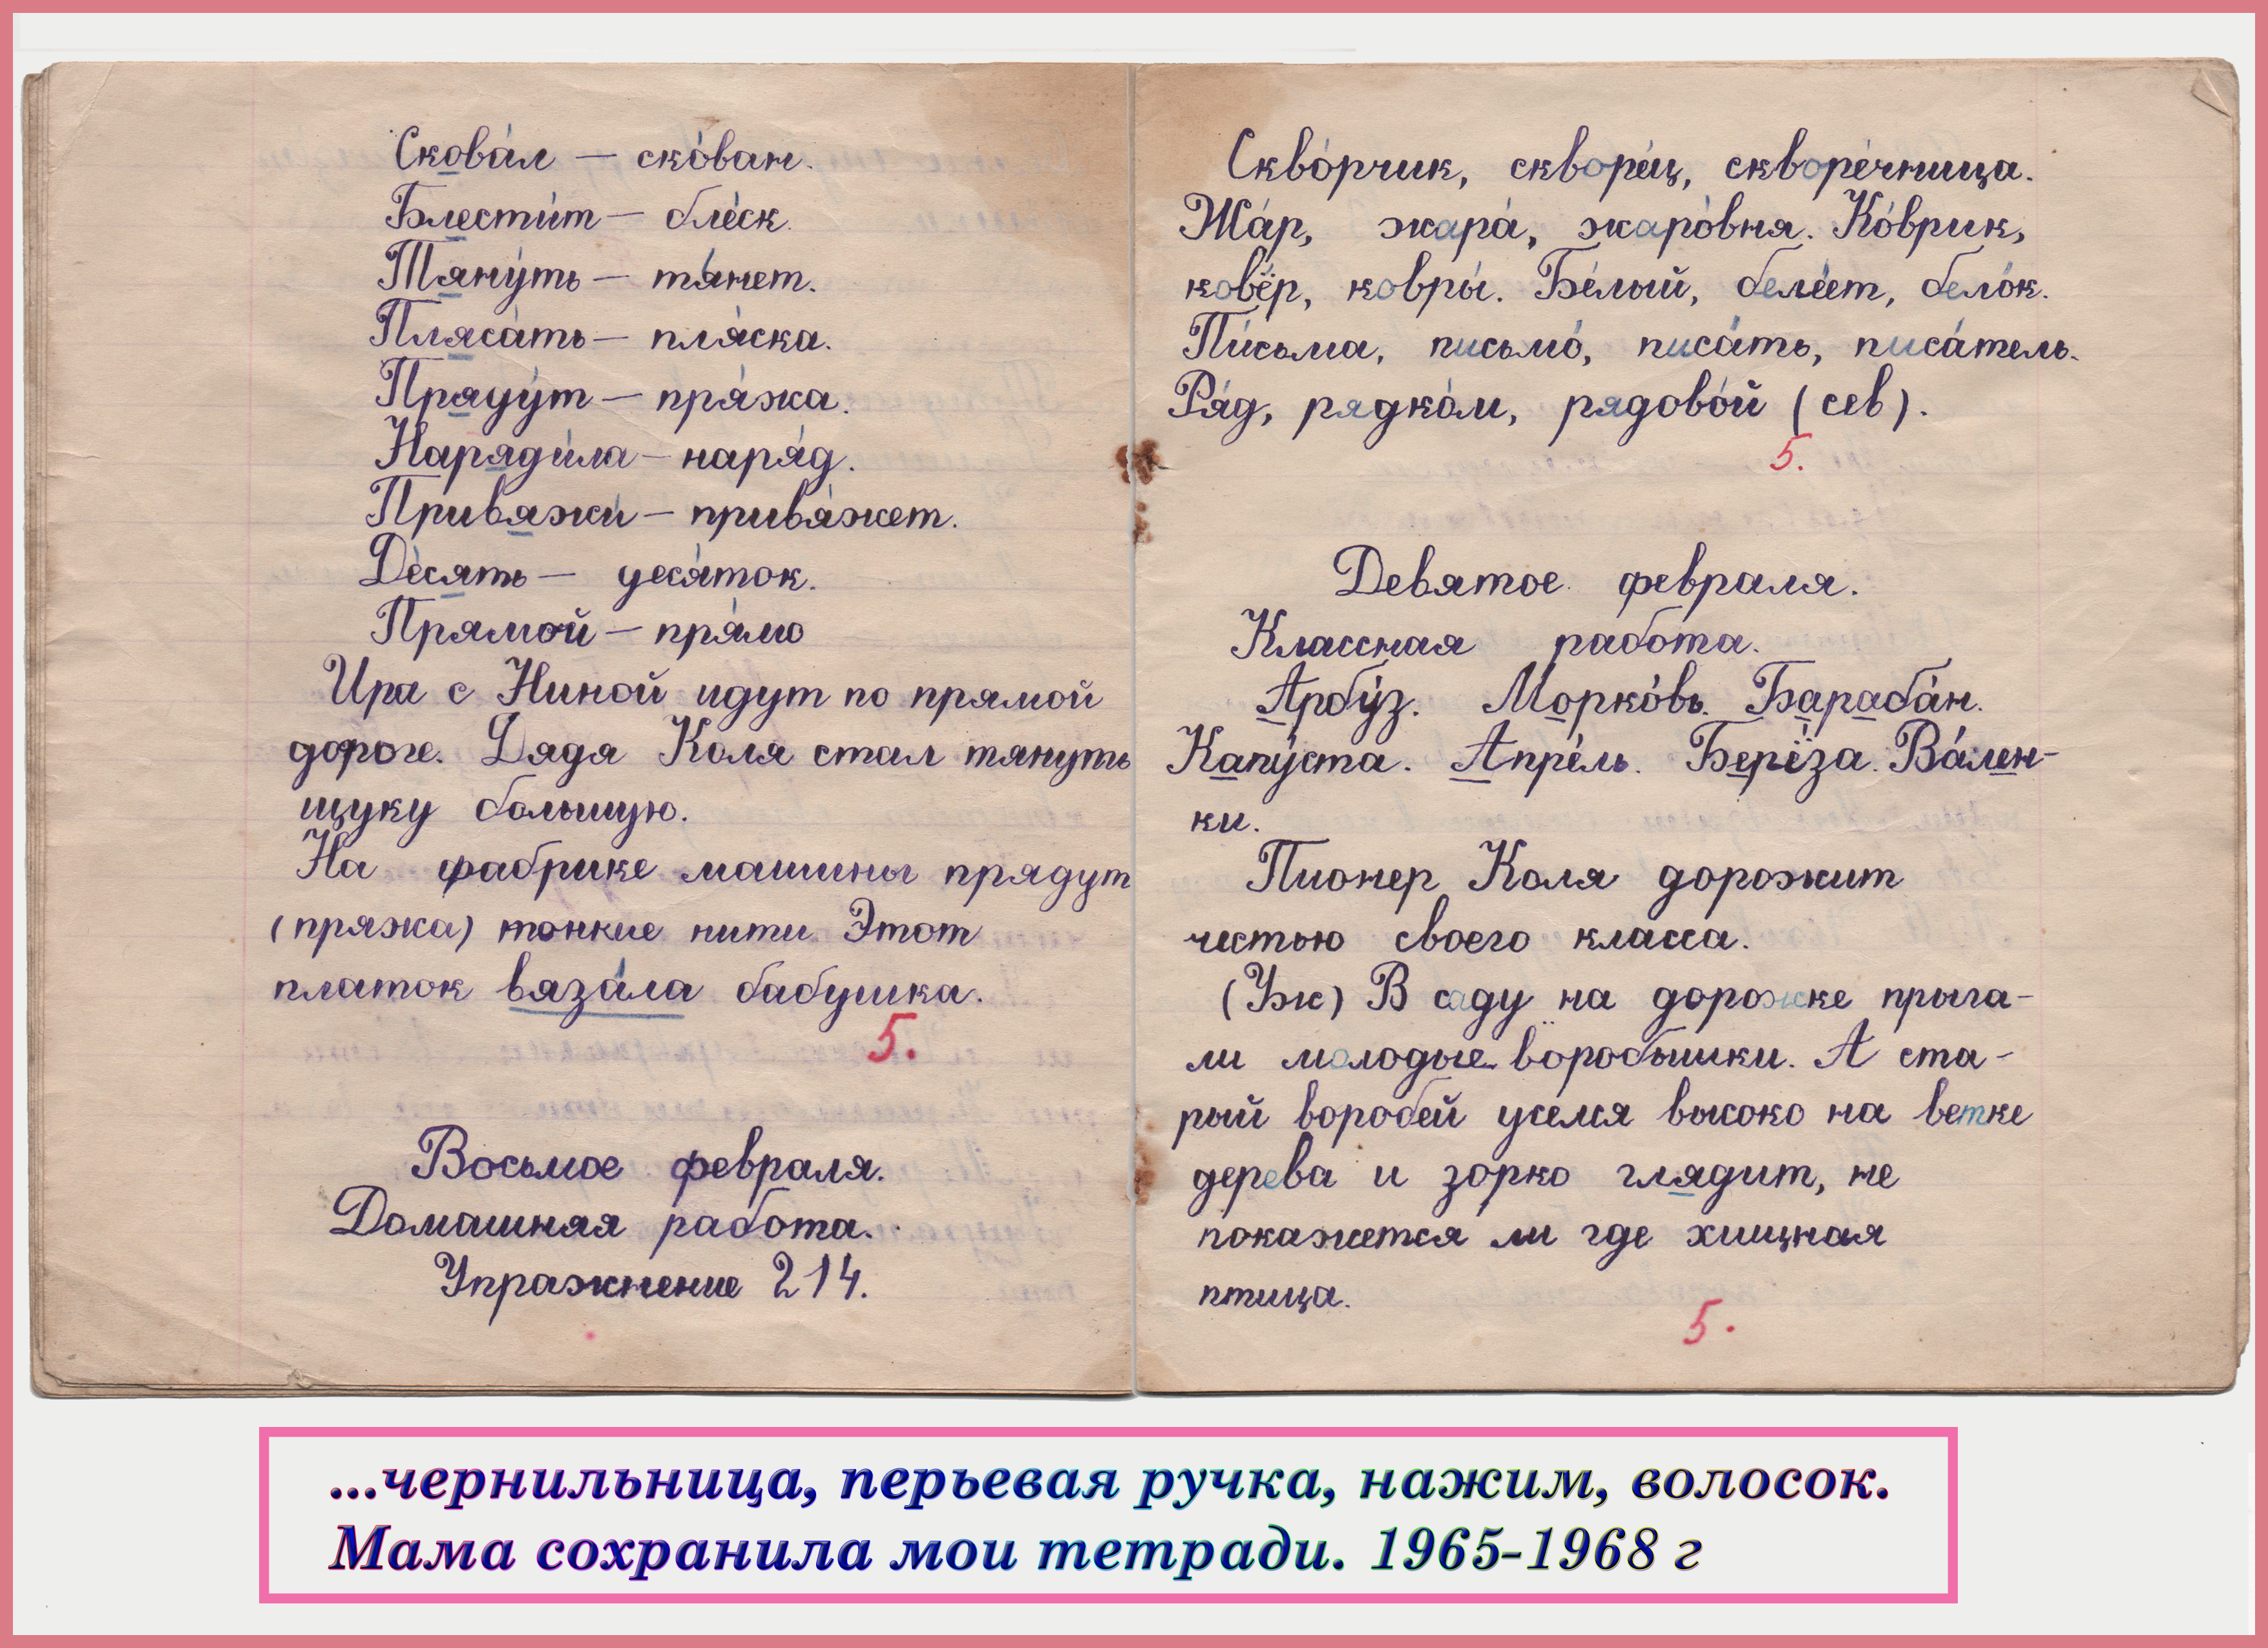 Скова́л — ско́ван.
Блести́т — бле́ск.
Тяну́ть — тя́нет.
Пляса́ть — пля́ска.
Пряду́т — пря́жа.
Наряди́ла — наря́д.
Привяжи́ — привя́жет.
Де́сять — деся́ток.
Прямой — пря́мо
Ира с Ниной идут по прямой
дороге. Дядя Коля стал тянуть
щуку большую.
На фабрике машины прядут
(пряжа) тонкие нити. Этот
платок вяза́ла бабушка.
5.
Восьмое февраля.
Домашняя работа.
Упражнение 214.
Скво́рчик, скворе́ц, скворе́чница.
Жа́р, жара́, жаро́вня. Ко́врик,
ковёр, ковры́. Бе́лый, беле́ет, бело́к.
Пи́сьма, письмо́, писа́ть, писа́тель.
Ря́д, рядко́м, рядово́й (сев).
5.
Девятое февраля.
Классная работа.
Арбу́з. Морко́вь. Бараба́н.
Капу́ста. Апре́ль. Берёза. Ва́лен-
ки.
Пионер Коля дорожит
честью своего класса.
(Уж) В саду на дорожке прыга-
ли молодые воробьишки. А ста-
рый воробей уселся высоко на ветке
дерева и зорко глядит, не
покажется ли где хищная
птица.
5.
...чернильница, перьевая ручка, нажим, волосок.
Мама сохранила мои тетради. 1965-1968 г